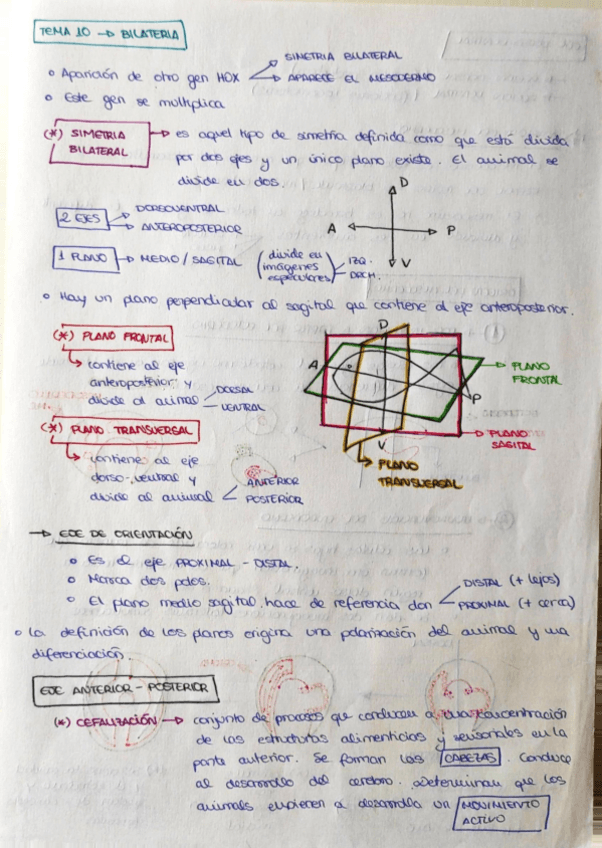 TEMA 10 → BILATERIA
SIMETRIA BILATERAL
• Aparición de otro gen HOX
APARECE EL MESODERMO
• Este gen se multiplica
(*) SIMETRIA BILATERAL → es aquel tipo de simetria definida como que está divida
por dos ejes y un único plano existe. El animal se
divide en dos.
D
2 EJES
DORSOVENTRAL
ANTEROPOSTERIOR
A
P
V
1 PLANO → MEDIO / SAGITAL
(divide en imágenes especulares)
IZQ.
DRCH.
• Hay un plano perpendicular al sagital que contiene al eje anteroposterior.
(*) PLANO FRONTAL
contiene al eje
anteroposterior y
divide al animal
DORSAL
VENTRAL
D
A
P
V
PLANO FRONTAL
PLANO SAGITAL
PLANO TRANSVERSAL
(*) PLANO TRANSVERSAL
contiene al eje
dorso-ventral y
divide al animal
ANTERIOR
POSTERIOR
→ EJE DE ORIENTACIÓN
• Es el eje PROXIMAL - DISTAL.
• Marca dos polos.
DISTAL (+ lejos)
• El plano medio sagital hace de referencia don
PROXIMAL (+ cerca)
• La definición de los planos origina una polarización del animal y una
diferenciación
EJE ANTERIOR - POSTERIOR
(*) CEFALIZACIÓN → conjunto de procesos que conducen a una concentración
de las estructuras alimenticias y sensoriales en la
parte anterior. Se forman las CABEZAS. Conduce
al desarrollo del cerebro. Determinan que los
animales empiecen a desarrolla un MOVIMIENTO
ACTIVO